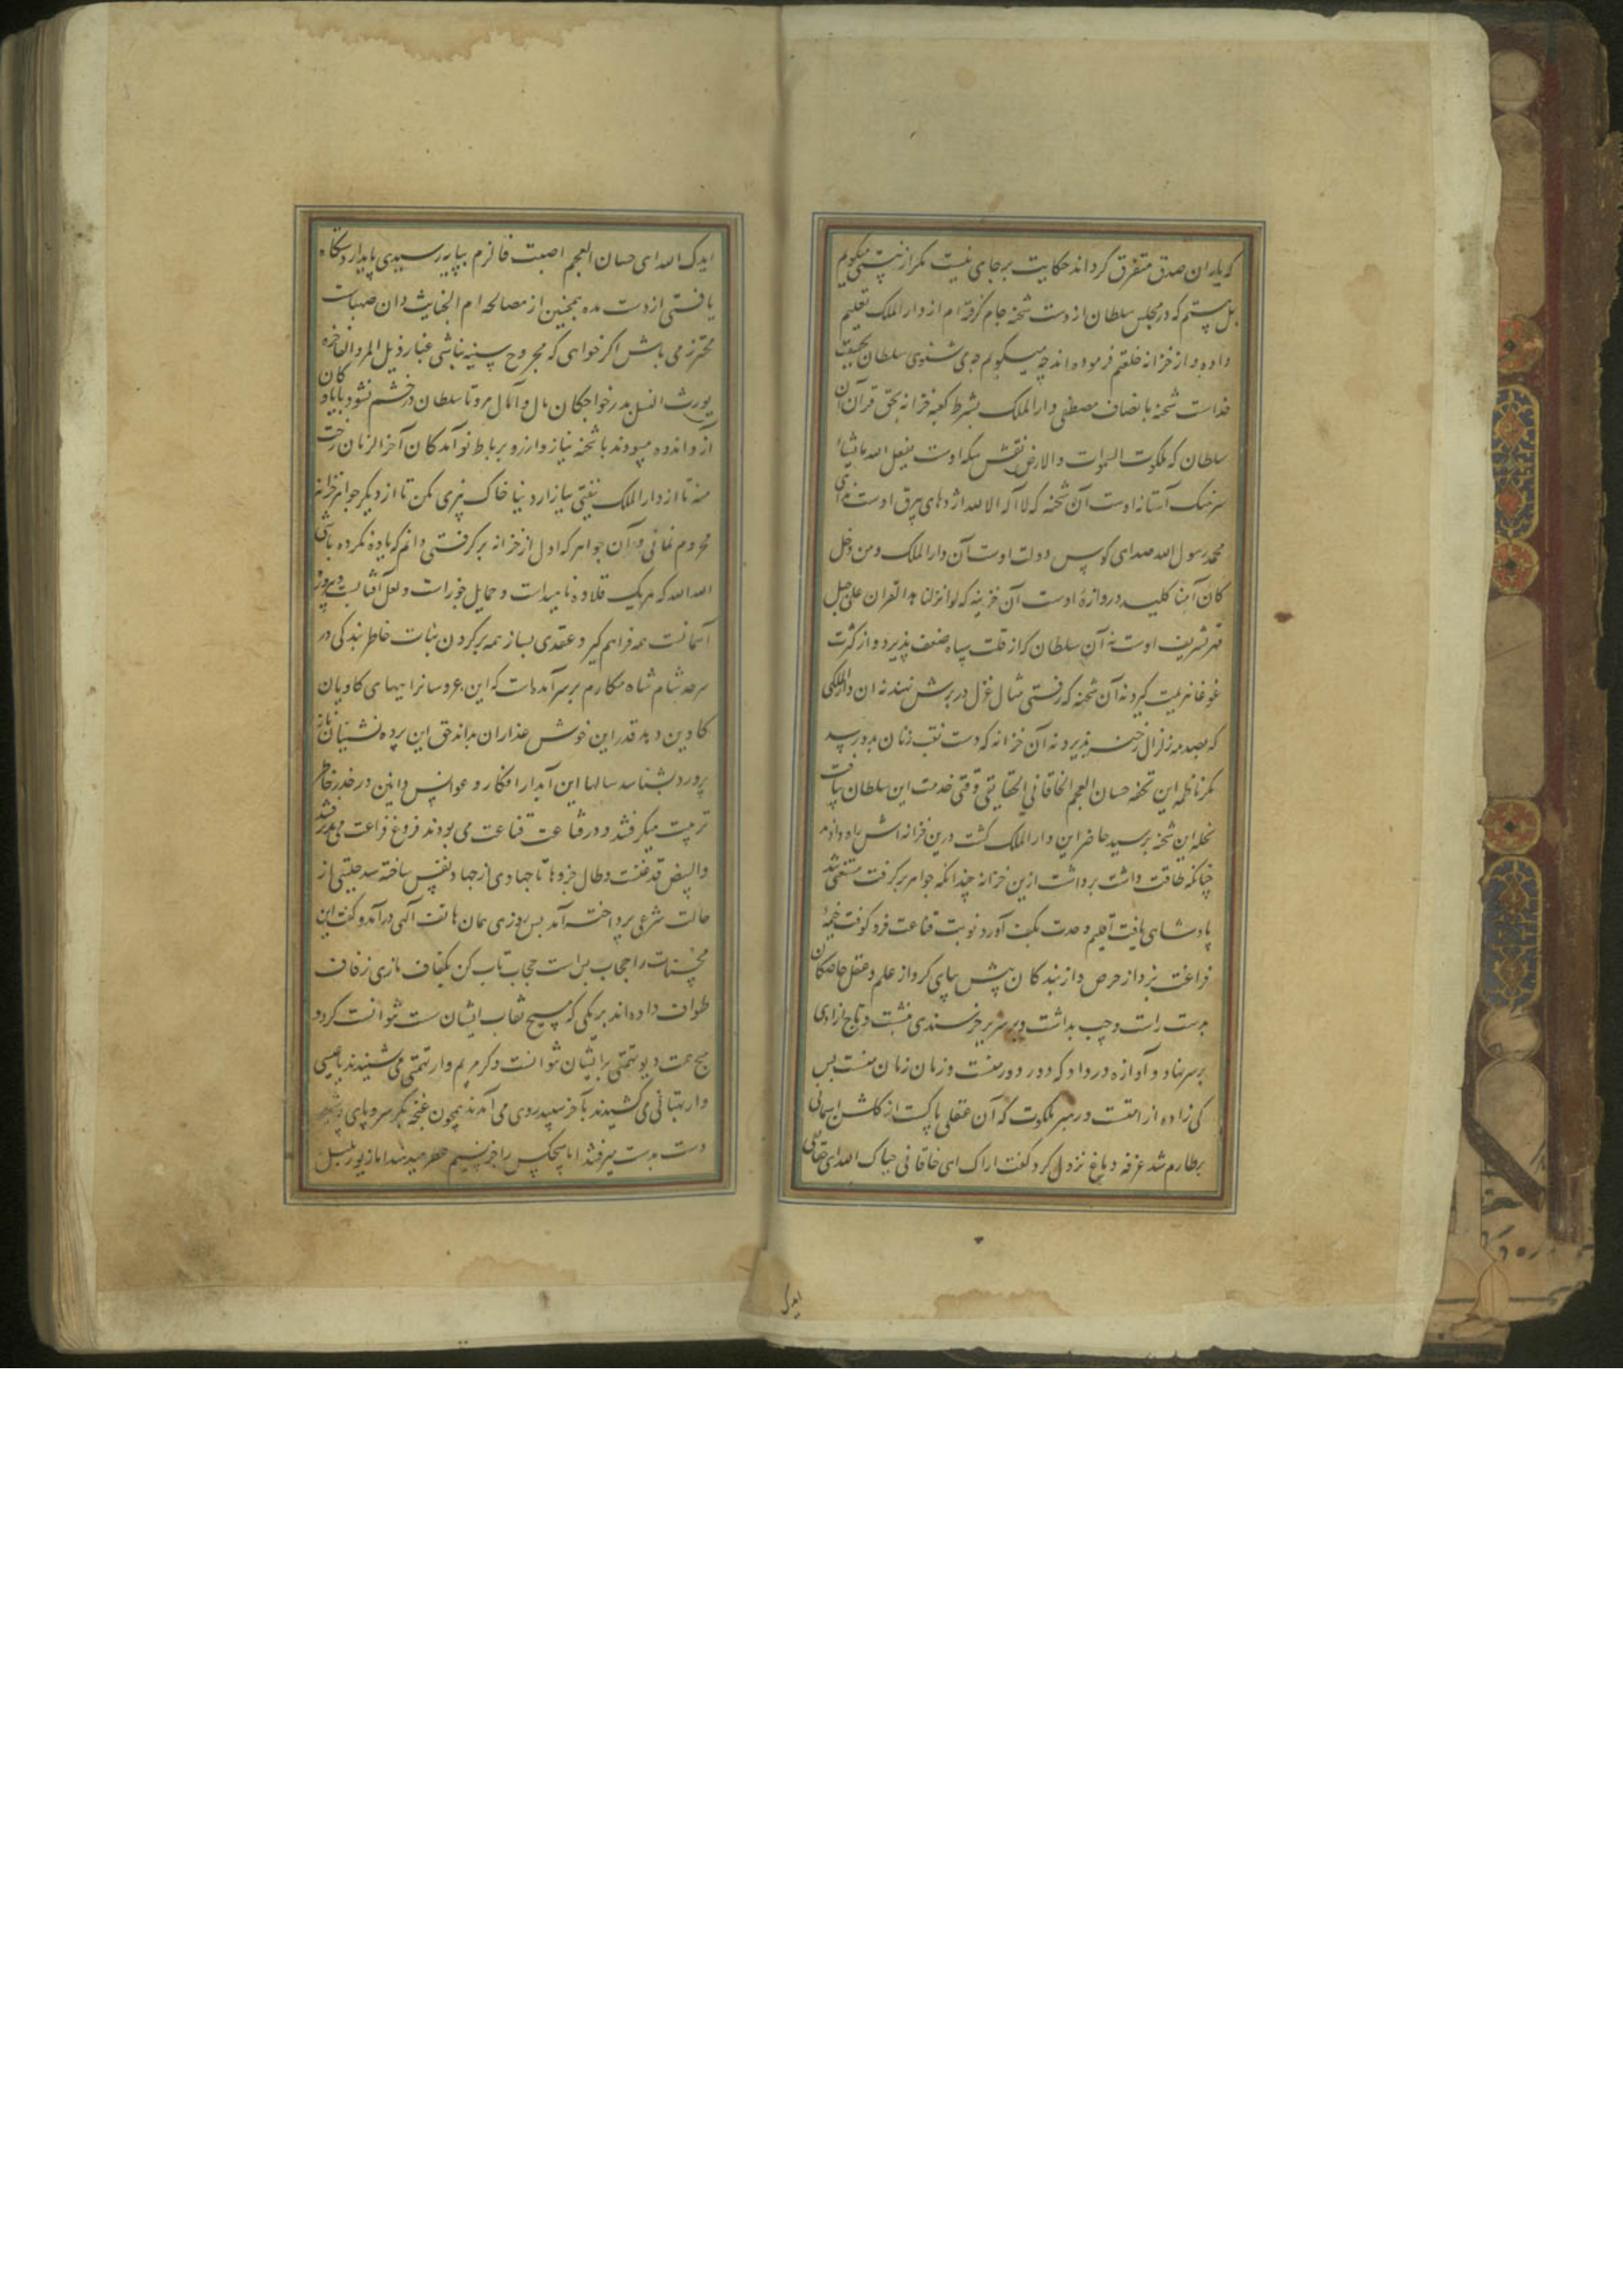 که یاران صدق متفرق کرد اند حکایت برجای نیست مکر از نیستی میکویم
بل مستم که در مجلس سلطان از دست شحنه جام کرفته‌ام از دار الملک تعلیم
داده و از خزانه خلعتم فرموده‌اند چه میکویم می شنوی سلطان بحقیقت
خداست شحنه بانصاف مصطفی دار الملک بشرط کعبه خزانه بحق قرآن آن
سلطان که ملکوت السموات والارض نقش سکه اوست یفعل الله ما یشاء
سرهنک آستانه اوست آن شحنه که لا اله الا الله اژدهای بیرق اوست
محمد رسول الله صدای کوس دولت اوست آن دار الملک ومن دخل
کان آمنا کلید دروازۀ اوست آن خزینه که لو انزلنا هذا القران علی جبل
مهر شریف اوست نه آن سلطان کز از قلت سپاه ضعف پذیرد و از کثرت
غوغا هزیمت کیرد نه آن شحنه که رفتی مثال عزل در برش نهند نه ان دار الملکی
که بصدمه زلزال رخنه پذیرد نه آن خزانه که دست نقب زنان بدو رسد
مکر ناظم این تحفه حسان العجم الخاقانی الحقایقی وقتی خدمت این سلطان بیافت
بخله این شحنه برسید حاضر این دار الملک کشت درین خزانه‌اش راه دادند
چنانکه طاقت داشت برداشت ازین خزانه چندانکه جواهر برکرفت مستغنی شد
پادشاهی یافت اقلیم وحدت بکف آورد نوبت قناعت فرو کوفت خیمۀ
فراغت بزد از حرص و از بندکان پیش بپای کرد از علم و عقل خاصکان
بدست راست و چپ بداشت و بر سریر خرسندی نشست و تاج ازادی
بر سر نهاد و آوازه در داد که دور دور منست و زمان زمان منست پس
کی زاده از امتست در مبر ملکوت که آن عقلی پاکست از کلشن اسمانی
بطارم شد غرفه دماغ نزول کرد کفت اراک ای خاقانی حیاک الله ای حقایقی
ایدک
ایدک الله ای حسان العجم اصبت فالزم بپایه رسیدی پایدار دستکاه
یافتی از دست مده همچنین از مصالحه ام الخبایث دان صهبات
محترز می باش اکر خواهی که مجروح سینه نباشی غبار ذیل المرد الفاخره
یورث السل بدر خواجکان مال و آمال مرو تا سلطان در خشم نشود با پادکان
آز و انده مپیوند با شحنه نیاز و ارزو بر باط نو آمدکان آخر الزمان رخت
منه تا از دار الملک نیفتی ببازار دنیا خاک بیزی مکن تا از دیکر جواهر خزانه
محروم نمانی و آن جواهر که اول از خزانه برکرفتی دانم که یاوه نکرده باشی
الله الله که هر یک قلاده ناهیداست و حمایل خوراست و لعل آفتابست و پیروزه
آسمانست همه فراهم کیر و عقدی بساز همه بر کردن بنات خاطر بند کی در
سرحد شام شاه مکارم بر سر آمده‌است که این عروسانرا بهای کاویان
کاوین دهد قدر این خوش عذاران بداند حق این پرده نشینان ناز
پرورد بشناسد سالها این آبدار افکار و عوانس دانین در خدر خاطر
تربیت میکرفتند و در قناعت قناعت می بودند فروغ فراعت می بدر شد
والبیض قد عنست و طال جزوها تا جهادی از جهاد نفس ساخته سد جلیتی از
حالت شرعی پرداخته آمد پس روزی همان هاتف آلهی درآمد و کفت این
مخبتات را حجاب بس است حجاب تاب کن بکفاف نازی زفاف
طواف داده‌اند بر یکی که مسیح نقاب ایشان سست نتوانست کرد و
هیچ عمت دیو تهمتی برایشان نتوانست و کر مریم وار تهمتی می شنیدند با عیسی
وار بهتانی می کشیدند بآخر سپید روی می آمدند همچون غنچه بکر سر و پای
دست بدست میرفتند اما هیچکس را جز نسیم عطر میدیدند اما زیور تسبل